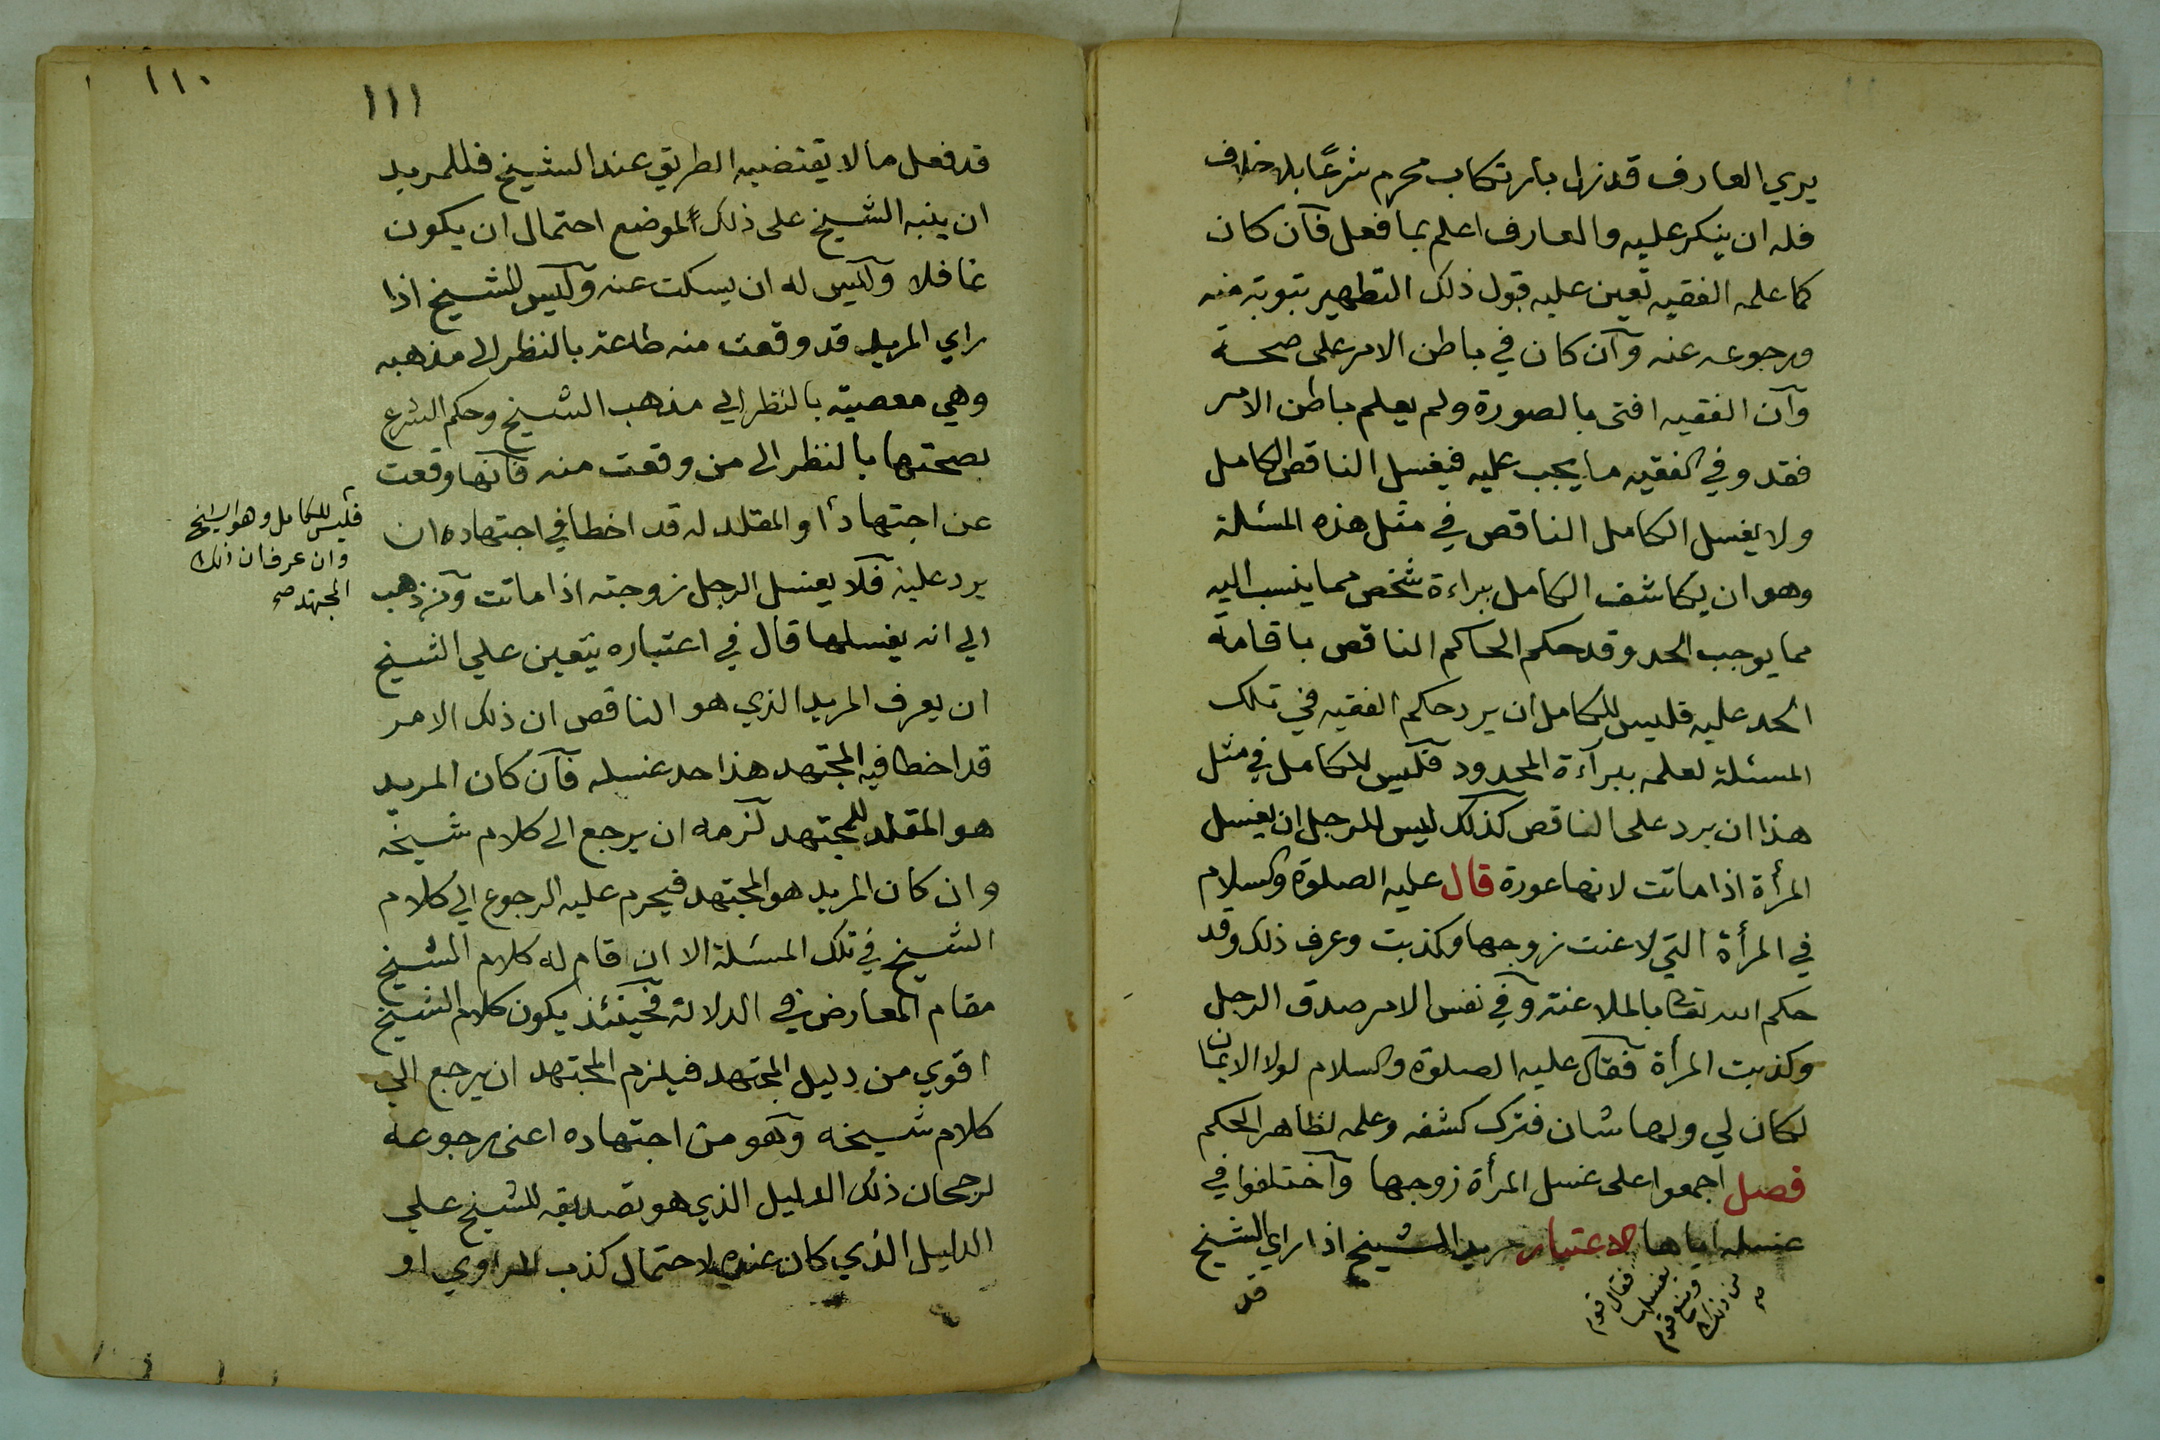 يري العارف قد نزل بارتكاب محرم شرعًا بلا خلاف
فله ان ينكر عليه والعارف اعلم بما فعل فآن كان
كما علمه الفقيه تعين عليه قبول ذلك التطهير بتوبته منه
ورجوعه عنه وآن كان في باطن الامر على صحة
وآن الفقيه افتى بالصورة ولم يعلم باطن الامر
فقد وفي الفقيه ما يجب عليه فيغسل الناقص الكامل
ولا يغسل الكامل الناقص في مثل هذه المسئلة
وهو ان يكاشف الكامل ببراءة شخص مما ينسب اليه
مما يوجب الحد وقد حكم الحاكم الناقص باقامة
الحد عليه فليس للكامل ان يرد حكم الفقيه في تلك
المسئلة لعلمه ببرآءة المحدود فليس للكامل في مثل
هذا ان يرد على الناقص كذلك ليس للرجل ان يغسل
المرأة اذا ماتت لانها عورة قال عليه الصلوة والسلام
في المرأة التي لاعنت زوجها وكذبت وعرف ذلك وقد
حكم الله تعالى بالملاعنة وفي نفس الامر صدق الرجل
وكذبت المرأة فقال عليه الصلوة والسلام لولا الايمان
لكان لي ولها شان فترك كشفه وعلمه لظاهر الحكم
فصل اجمعوا على غسل المرأة زوجها وآختلفوا في
غسله اياها الاعتبار مريد الشيخ اذا راي الشيخ
فقال قوم
يغسلها
ومنع قوم
من ذلك
صح
قد
١١٠
١١١
قد فعل ما لا يقتضيه الطريق عند الشيخ فللمريد
ان ينبه الشيخ على ذلك لموضع احتمال ان يكون
غافلا وليس له ان يسكت عنه وليس للشيخ اذا
راي المريد قد وقعت منه طاعة بالنظر الى مذهبه
وهي معصية بالنظر الي مذهب الشيخ وحكم الشرع
بصحتها بالنظر الى من وقعت منه فآنها وقعت
عن اجتهاد او المقلد له قد اخطا في اجتهاده ان
يرد عليه فلا يغسل الرجل زوجته اذا ماتت ومن ذهب
الي انه يغسلها قال في اعتباره يتعين علي الشيخ
ان يعرف المريد الذي هو الناقص ان ذلك الامر
قد اخطا فيه المجتهد هذا حد غسله فآن كان المريد
هو المقلد للمجتهد لزمه ان يرجع الى كلام شيخه
وان كان المريد هو المجتهد فيحرم عليه الرجوع الي كلام
الشيخ في تلك المسئلة الا ان قام له كلام الشيخ
مقام المعارض في الدلالة فحينئذ يكون كلام الشيخ
اقوي من دليل المجتهد فيلزم المجتهد ان يرجع الي
كلام شيخه وهو من اجتهاده اعنى رجوعه
لرجحان ذلك الدليل الذي هو تصديقه للشيخ علي
الدليل الذي كان عنده لاحتمال كذب الراوي او
فليس للكامل وهو الشيخ
وان عرف ان ذلك
المجتهد صح